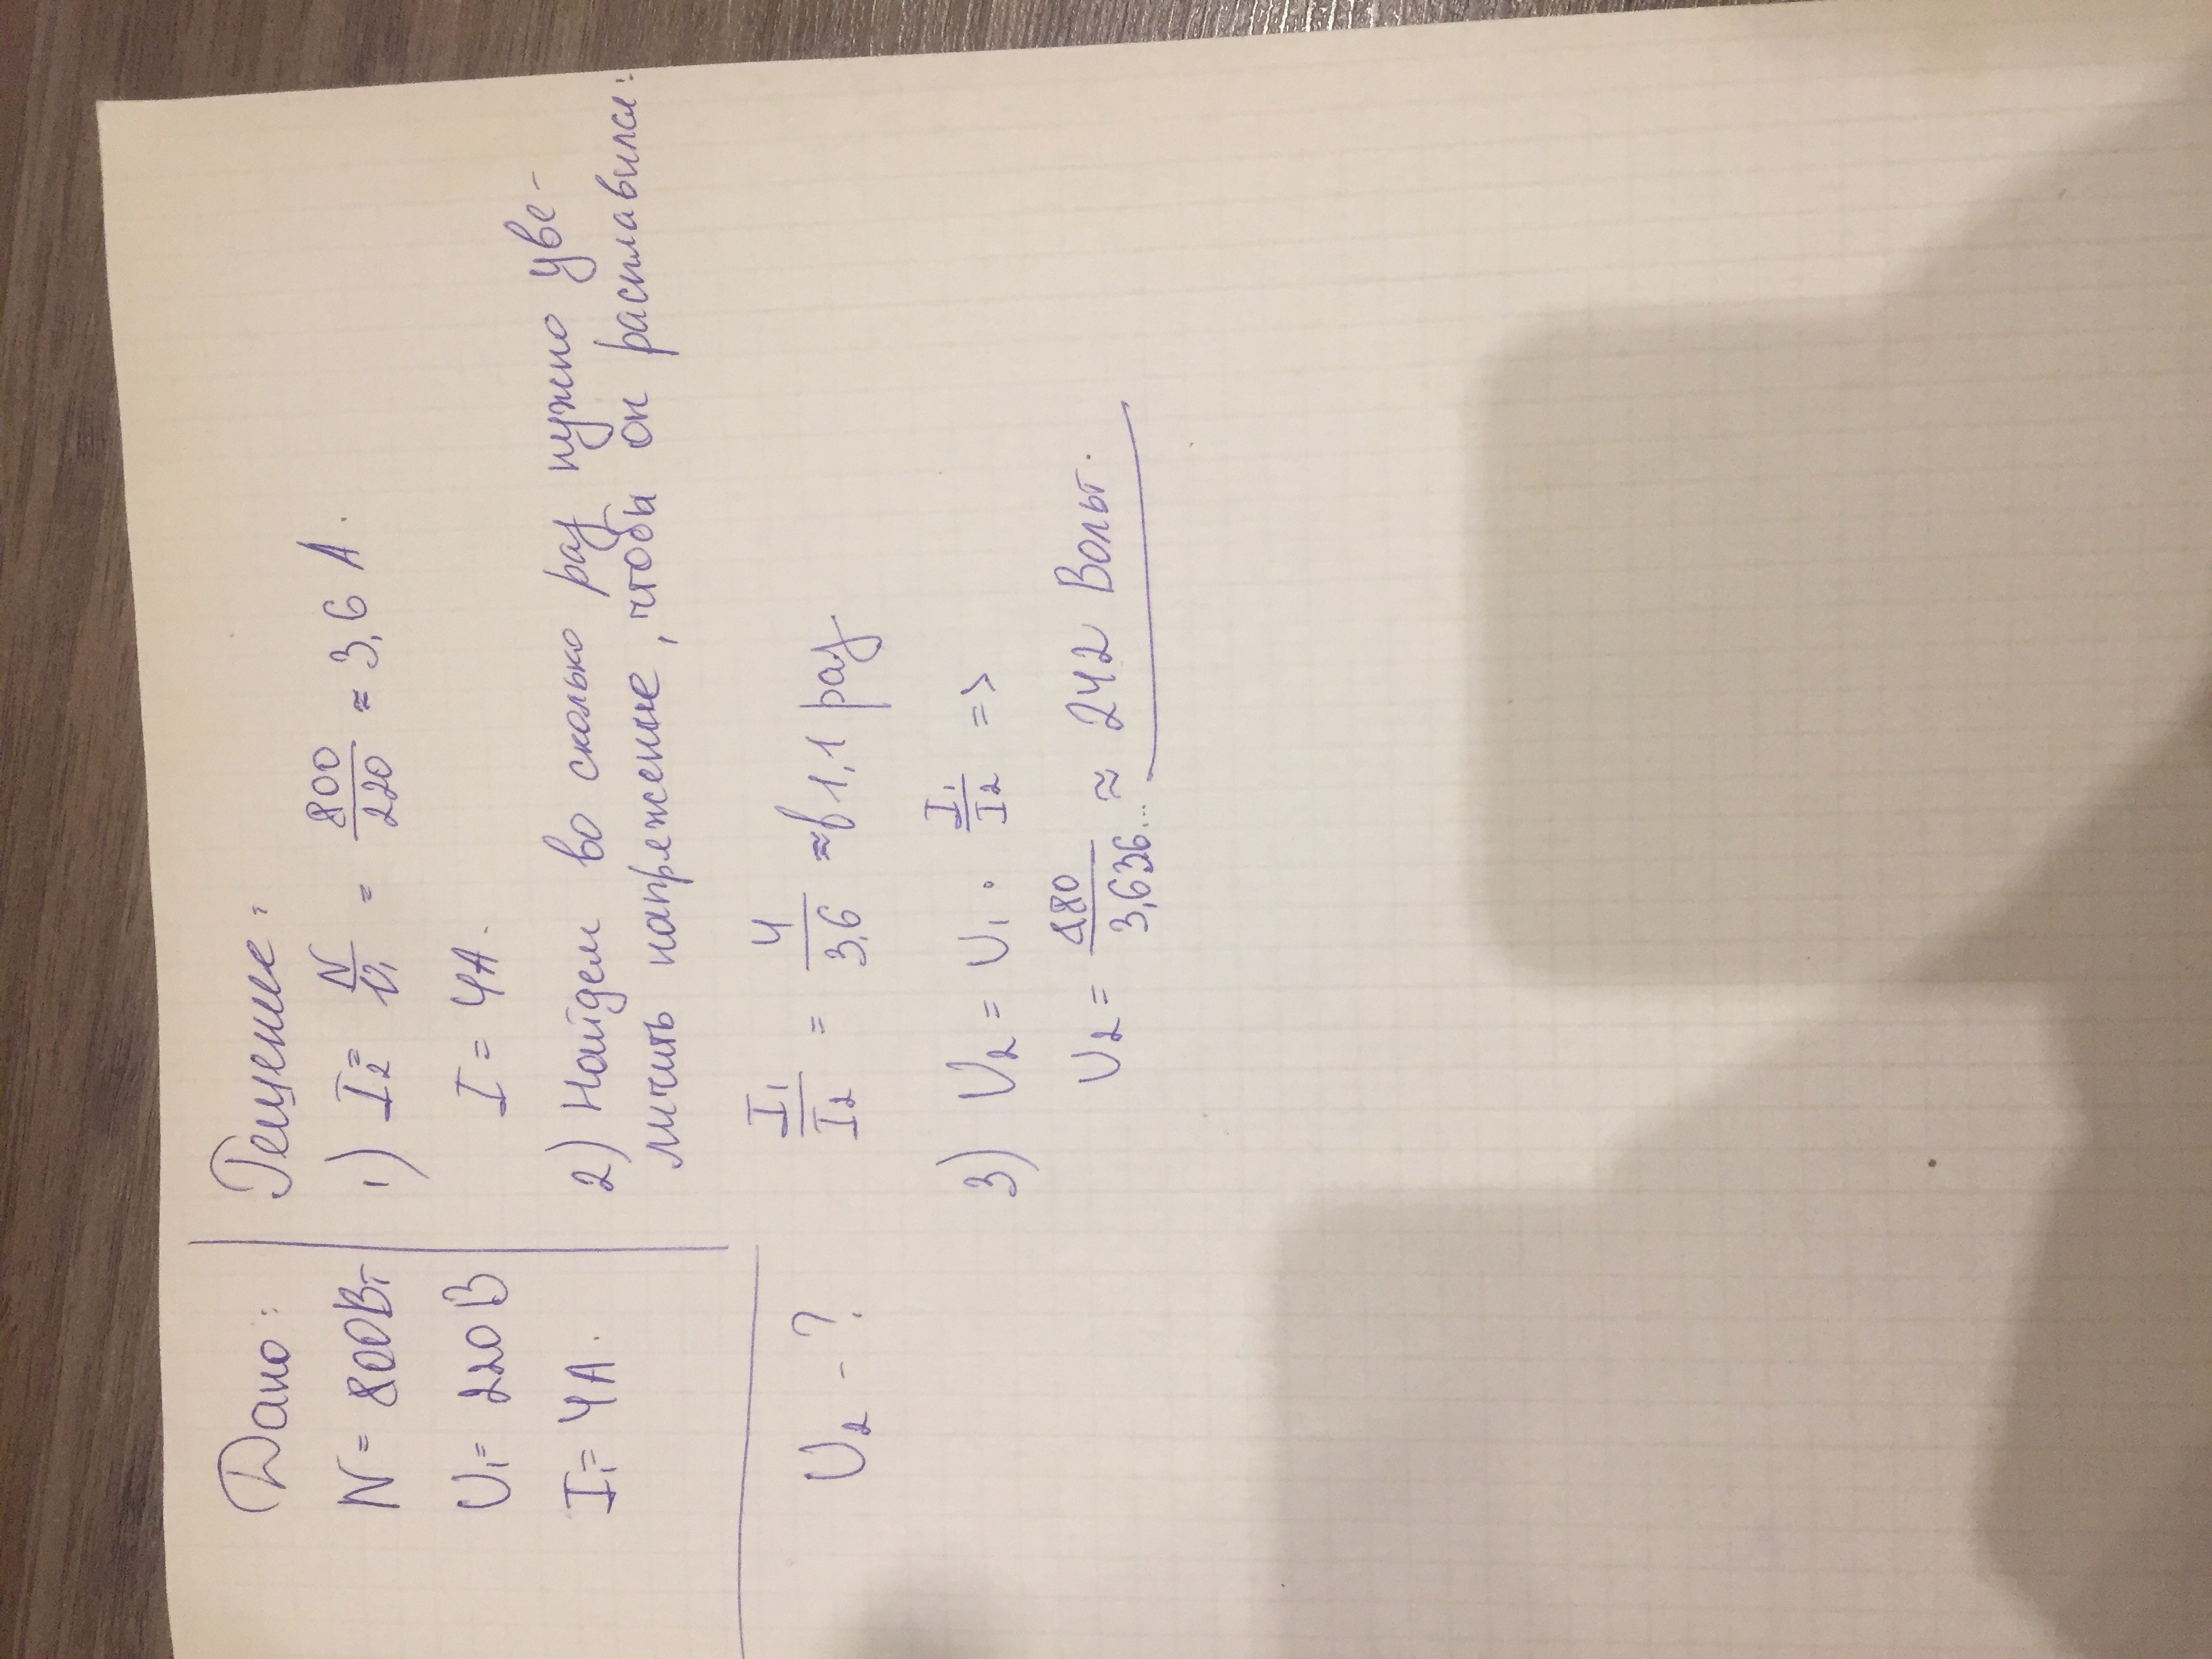 Дано:
N = 800Вт
U₁ = 220В
I₁ = 4А.
U₂ - ?
Решение:
1) I₂ = N/U₁ = 800/220 ≈ 3,6 А.
I = 4А.
2) Найдем во сколько раз нужно уве-
личить напряжение, чтобы он расплавился:
I₁/I₂ = 4/3,6 ≈ в 1,1 раз
3) U₂ = U₁ · I₁/I₂ =>
U₂ = 880/3,636... ≈ 242 Вольт.